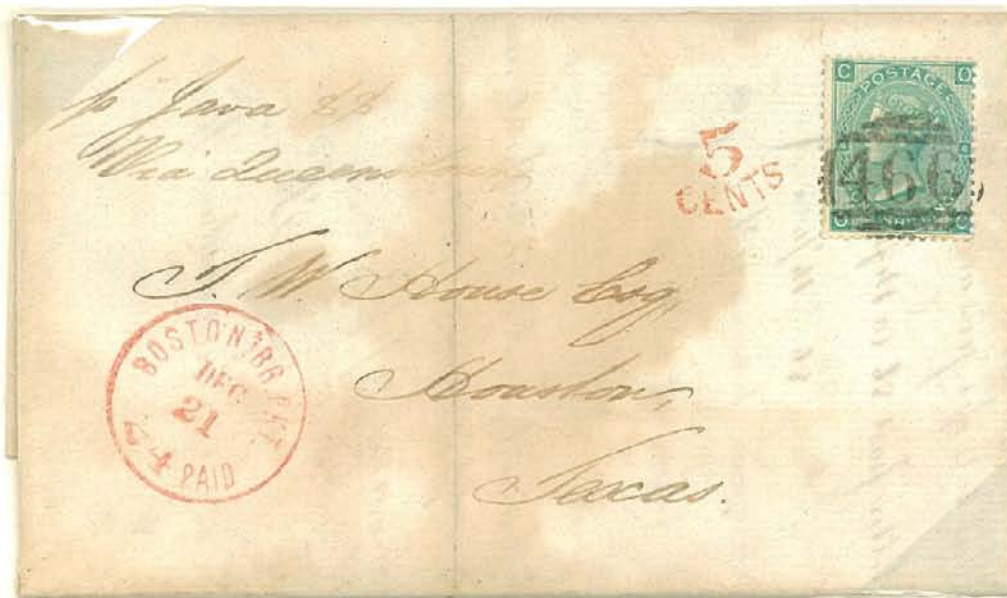 p Java SS
Via Queenstown
5
CENTS
C O
POSTAGE
466
O C
T. W. House Esq
Houston,
Texas.
BOSTON BR. PKT.
DEC
21
24 PAID